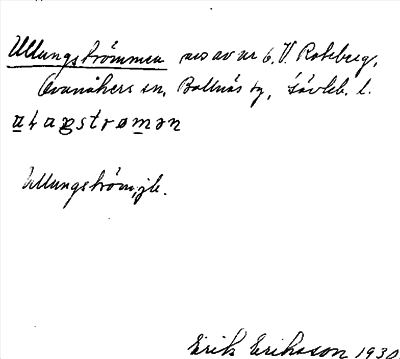 Ullungströmmen nes av nr 6. V. Roteberg,
Ovanåkers sn, Bollnäs tg, Gävleb. l.
Ullungström, jb.
Erik Eriksson 1930